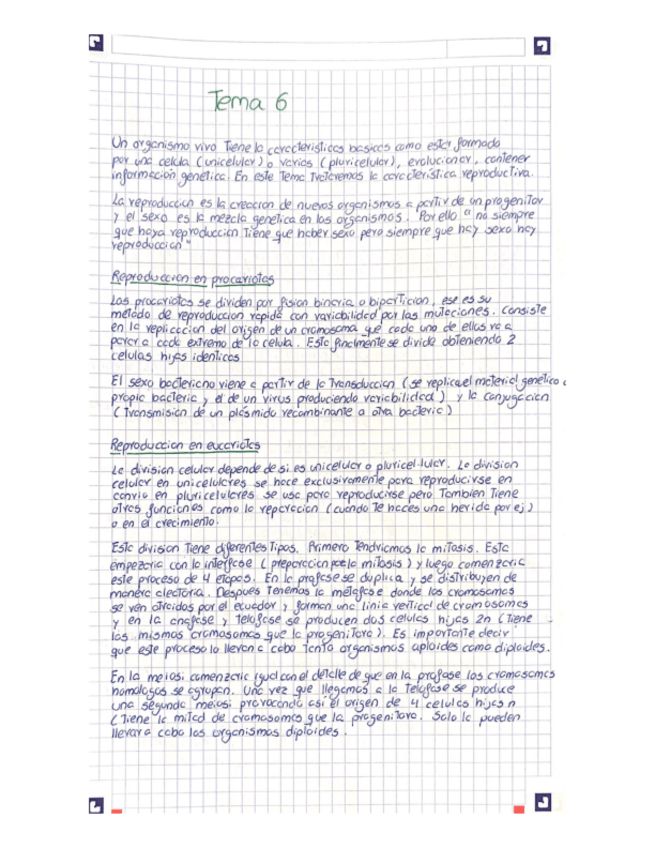 Tema 6
Un organismo vivo Tiene la caracteristicas basicas como estar formado
por una celula (unicelular) o varias (pluricelular), evolucionar, contener
informacion genetica. En este Tema Trataremos la caracteristica reproductiva.
La reproduccion es la creacion de nuevos organismos a partir de un progenitor
y el sexo es la mezcla genetica en los organismos. Por ello " no siempre
que haya reproduccion Tiene que haber sexo pero siempre que hay sexo hay
reproduccion"
Reproduccion en procariotas
Los procariotas se dividen por fision binaria o biparticion, ese es su
metodo de reproduccion rapida con variabilidad por las mutaciones. Consiste
en la replicacion del origen de un cromosoma que cada uno de ellas va a
parar a cada extremo de la celula. Esta finalmente se divide obteniendo 2
celulas hijas identicas
El sexo bacteriano viene a partir de la Transduccion (se replica el material genetico
propia bacteria y el de un virus produciendo variabilidad) y la conjugacion
(Transmision de un plasmido recombinante a otra bacteria)
Reproduccion en eucariotas
La division celular depende de si es unicelular o pluricelular. La division
celular en unicelulares se hace exclusivamente para reproducirse en
cambio en pluricelulares se usa para reproducirse pero Tambien Tiene
otras funciones como la reparacion (cuando Te haces una herida por ej)
o en el crecimiento.
Esta division Tiene diferentes Tipos. Primero Tendriamos la mitosis. Esta
empezaria con la interfase (preparacion para la mitosis) y luego comenzaria
este proceso de 4 etapas. En la profase se duplica y se distribuyen de
manera electoria. Despues Tenemos la metafase donde los cromosomas
se ven atraidos por el ecuador y forman una linia vertical de cromosomas
y en la anafase y telofase se producen dos celulas hijas 2n (Tiene
los mismos cromosomas que la progenitora). Es importante decir
que este proceso lo llevan a cabo Tanto organismos aploides como diploides.
En la meiosi comenzaria igual con el detalle de que en la profase los cromosomas
homologos se agrupan. Una vez que llegamos a la Telofase se produce
una segunda meiosi provocando asi el origen de 4 celulas hijas n
(Tiene la mitad de cromosomas que la progenitora. Solo la pueden
llevar a cabo los organismos diploides.